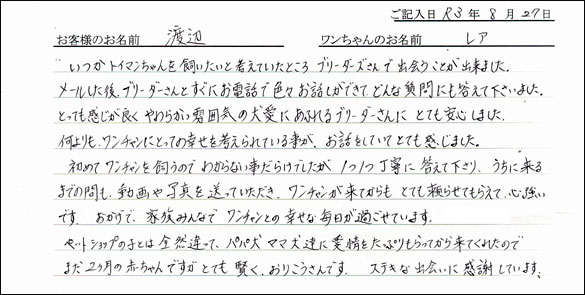 ご記入日 R3 年 8 月 27日
お客様のお名前 渡辺 ワンちゃんのお名前 レア
いつかトイマンちゃんを飼いたいと考えていたところ ブリーダーズさんで出会うことが出来ました。
メールした後、ブリーダーさんとすぐにお電話で色々お話しができて どんな質問にも答えて下さいました。
とっても感じが良く やわらかい雰囲気の犬愛にあふれるブリーダーさんに とても安心しました。
何よりも、ワンチャンにとっての幸せを考えられている事が、お話をしていてとても感じました。
初めてワンチャンを飼うので わからない事だらけでしたが 1つ1つ丁寧に答えて下さり、うちに来る
までの間も、動画や写真を送っていただき、ワンチャンが来てからも とても頼らせてもらえて、心強い
です。 おかげで、家族みんなで ワンチャンとの幸せな毎日が過ごせています。
ペットショップの子とは全然違って、パパ犬 ママ犬達に愛情をたっぷりもらってから来てくれたので
まだ2ヶ月の赤ちゃんですが とても賢く、おりこうさんです。 ステキな出会いに感謝しています。